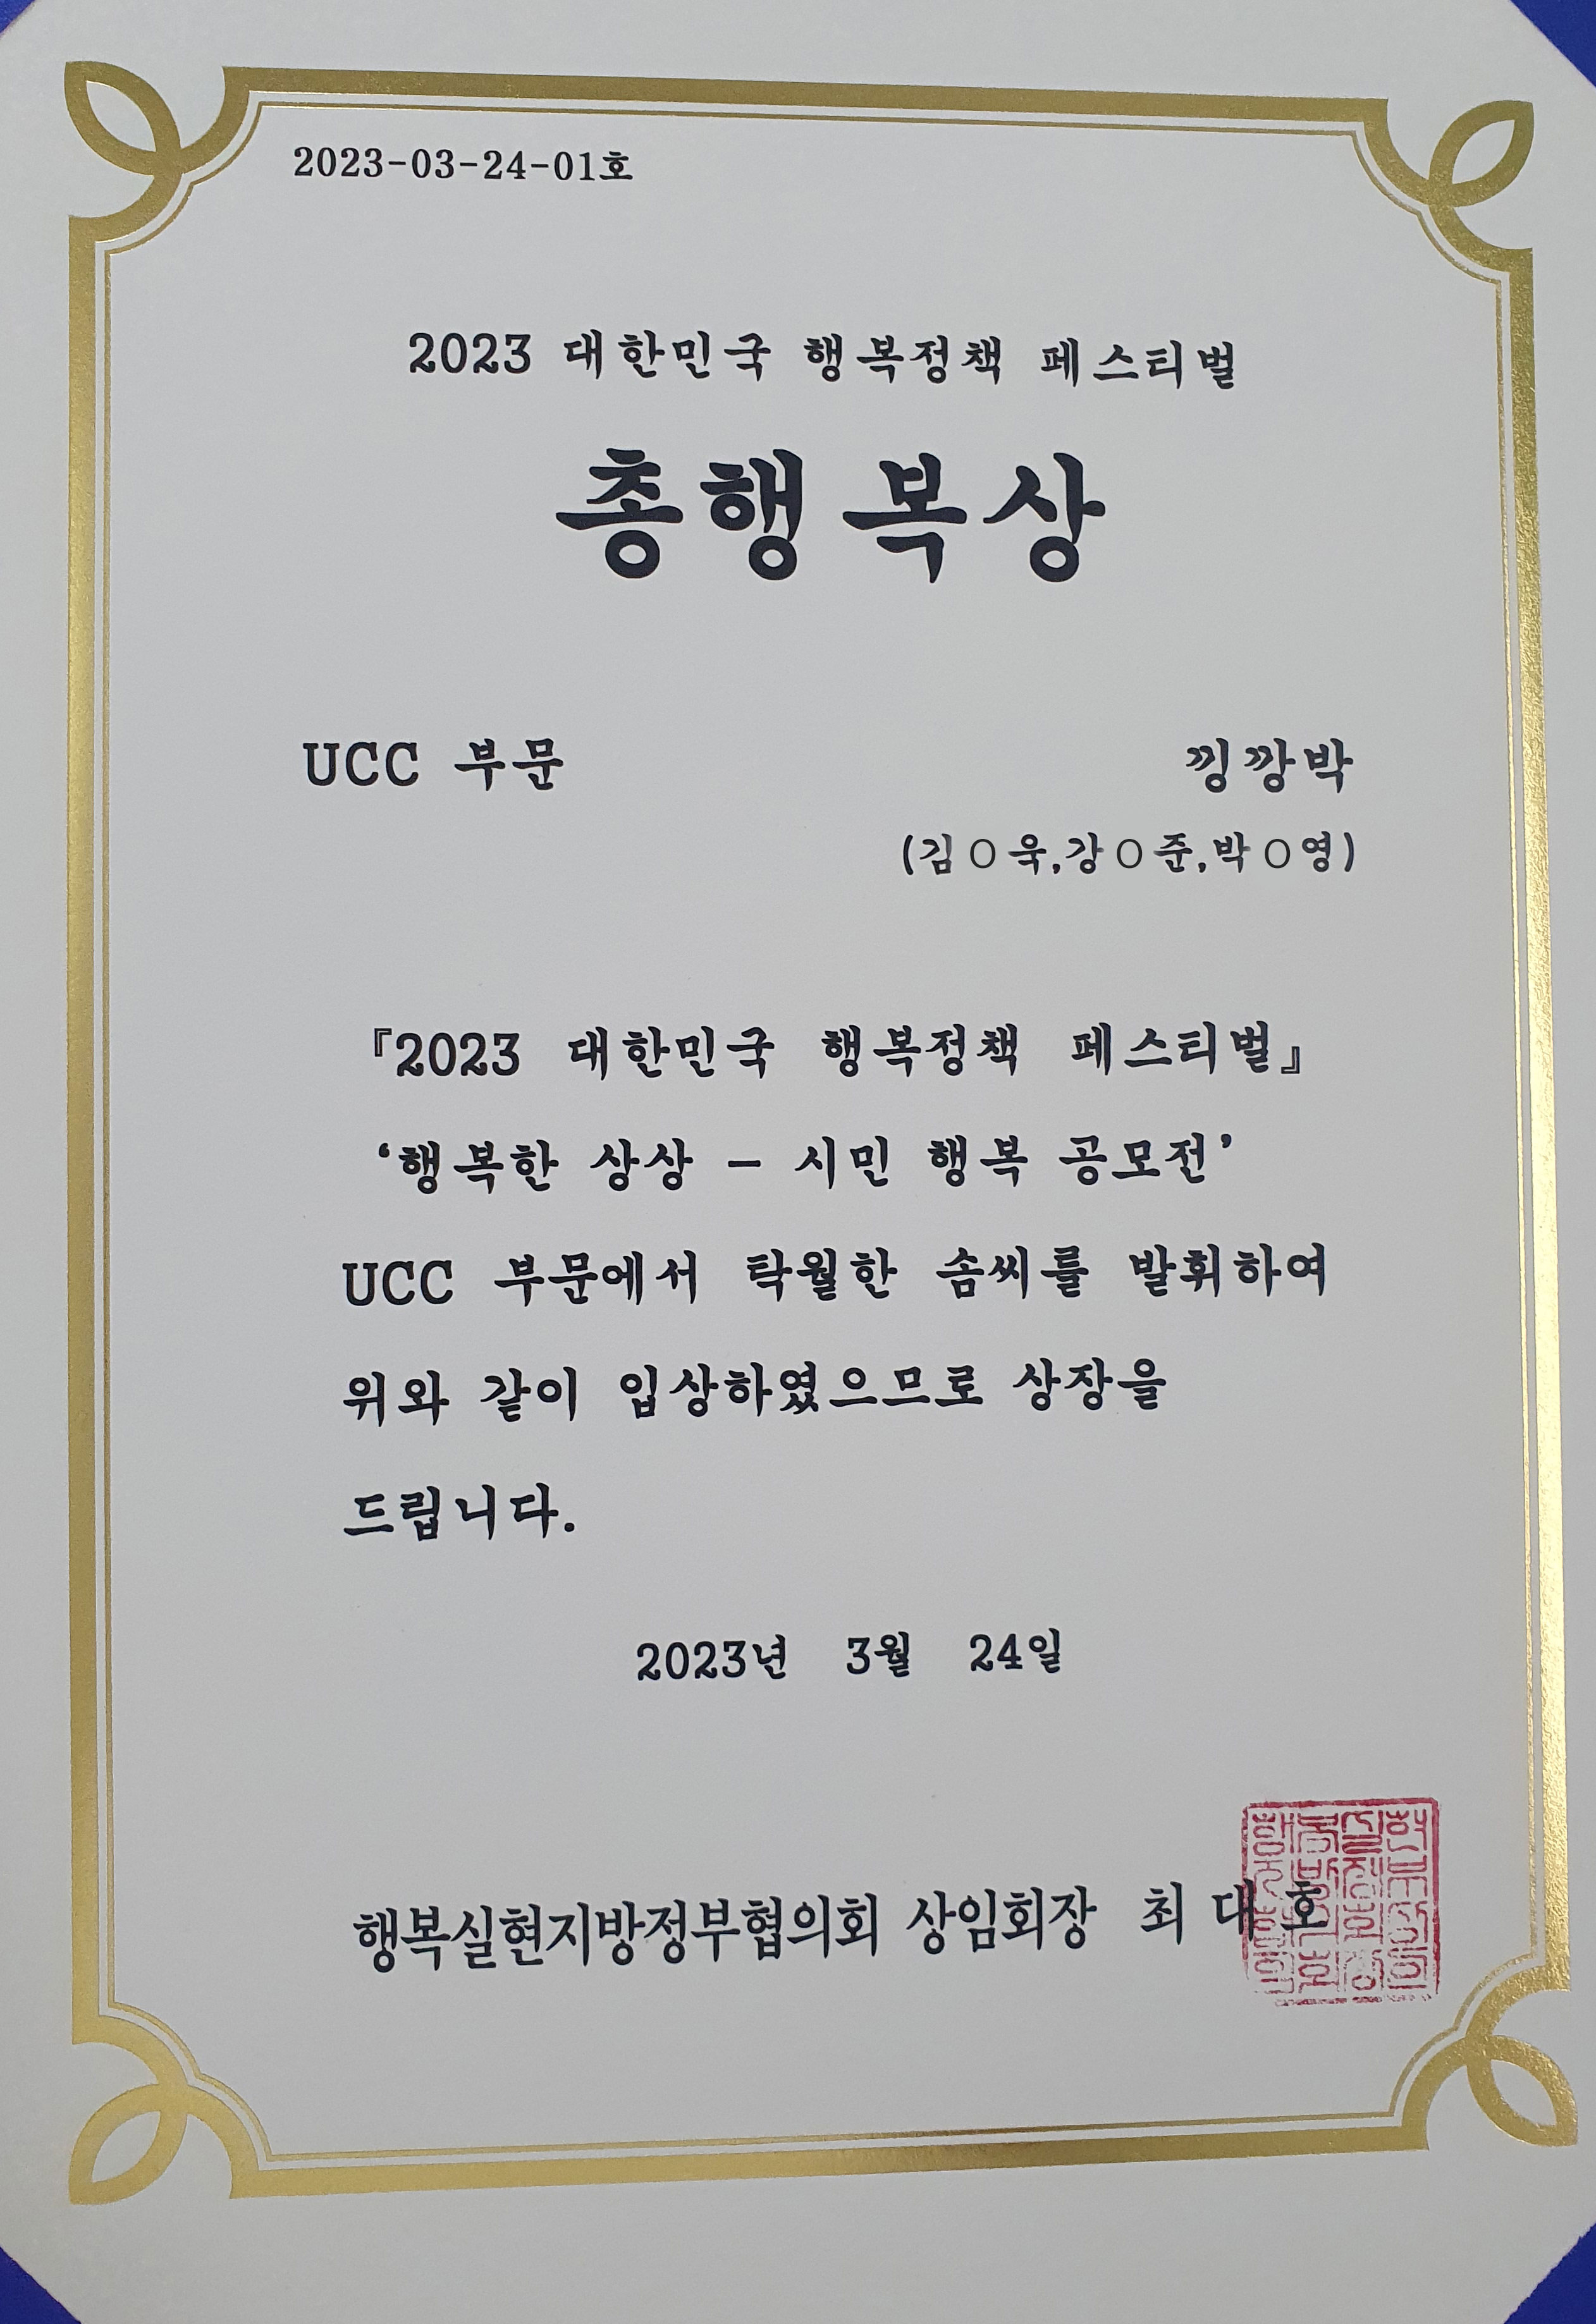 2023-03-24-01호
2023 대한민국 행복정책 페스티벌
총행복상
UCC 부문
낑깡박
(김○욱,강○준,박○영)
『2023 대한민국 행복정책 페스티벌』
‘행복한 상상 - 시민 행복 공모전’
UCC 부문에서 탁월한 솜씨를 발휘하여
위와 같이 입상하였으므로 상장을
드립니다.
2023년 3월 24일
행복실현지방정부협의회 상임회장 최 대 호